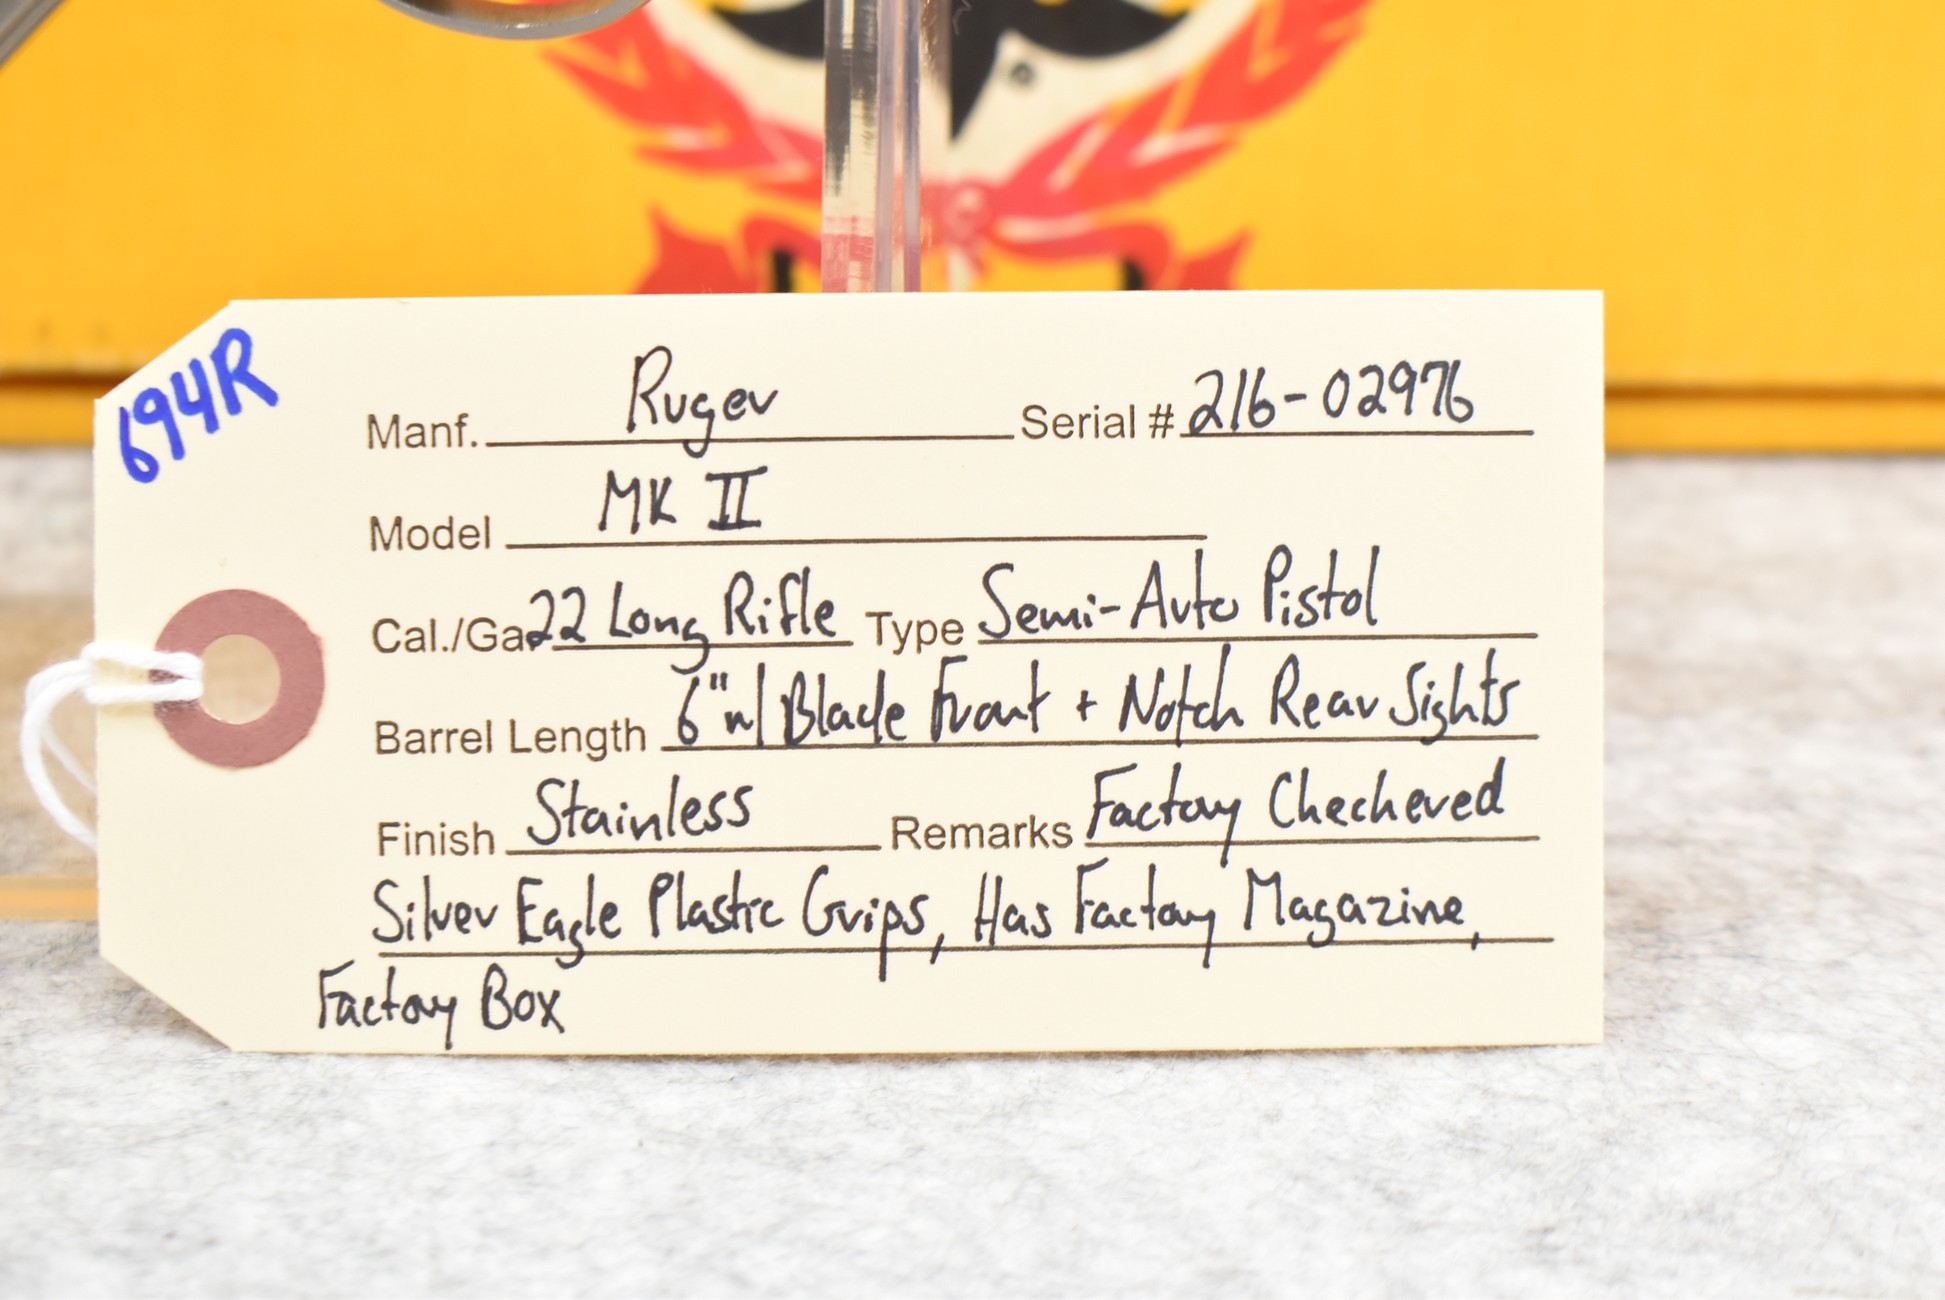 694R
Manf. Ruger Serial # 216-02976
Model MK II
Cal./Ga. 22 Long Rifle Type Semi-Auto Pistol
Barrel Length 6" w/ Blade Front + Notch Rear Sights
Finish Stainless Remarks Factory Checkered
Silver Eagle Plastic Grips, Has Factory Magazine,
Factory Box
®